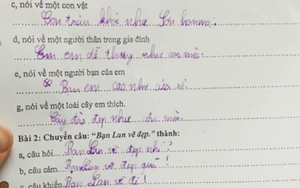 c, nói về một con vật
Con trâu khỏe như
d, nói về một người thân trong gia đình
Em em dễ thương như
e, nói về một người bạn của em
Bạn em cao như
g, nói về một loài cây em thích.
Cây đào đẹp như
Bài 2: Chuyển câu: "Bạn Lan vẽ đẹp." thành:
a, câu hỏi Bạn Lan vẽ đẹp
b, câu cảm Bạn Lan vẽ đẹp quá!
c, câu khiến Bạn Lan vẽ đi!